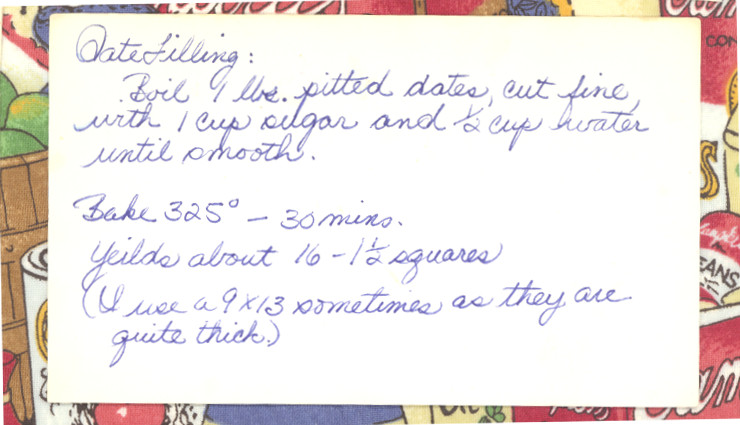 Date Filling:
Boil 1 lbs. pitted dates, cut fine,
with 1 cup sugar and ½ cup water
until smooth.
Bake 325° – 30 mins.
Yeilds about 16 – 1½ squares
(I use a 9 x 13 sometimes as they are
quite thick.)
EANS